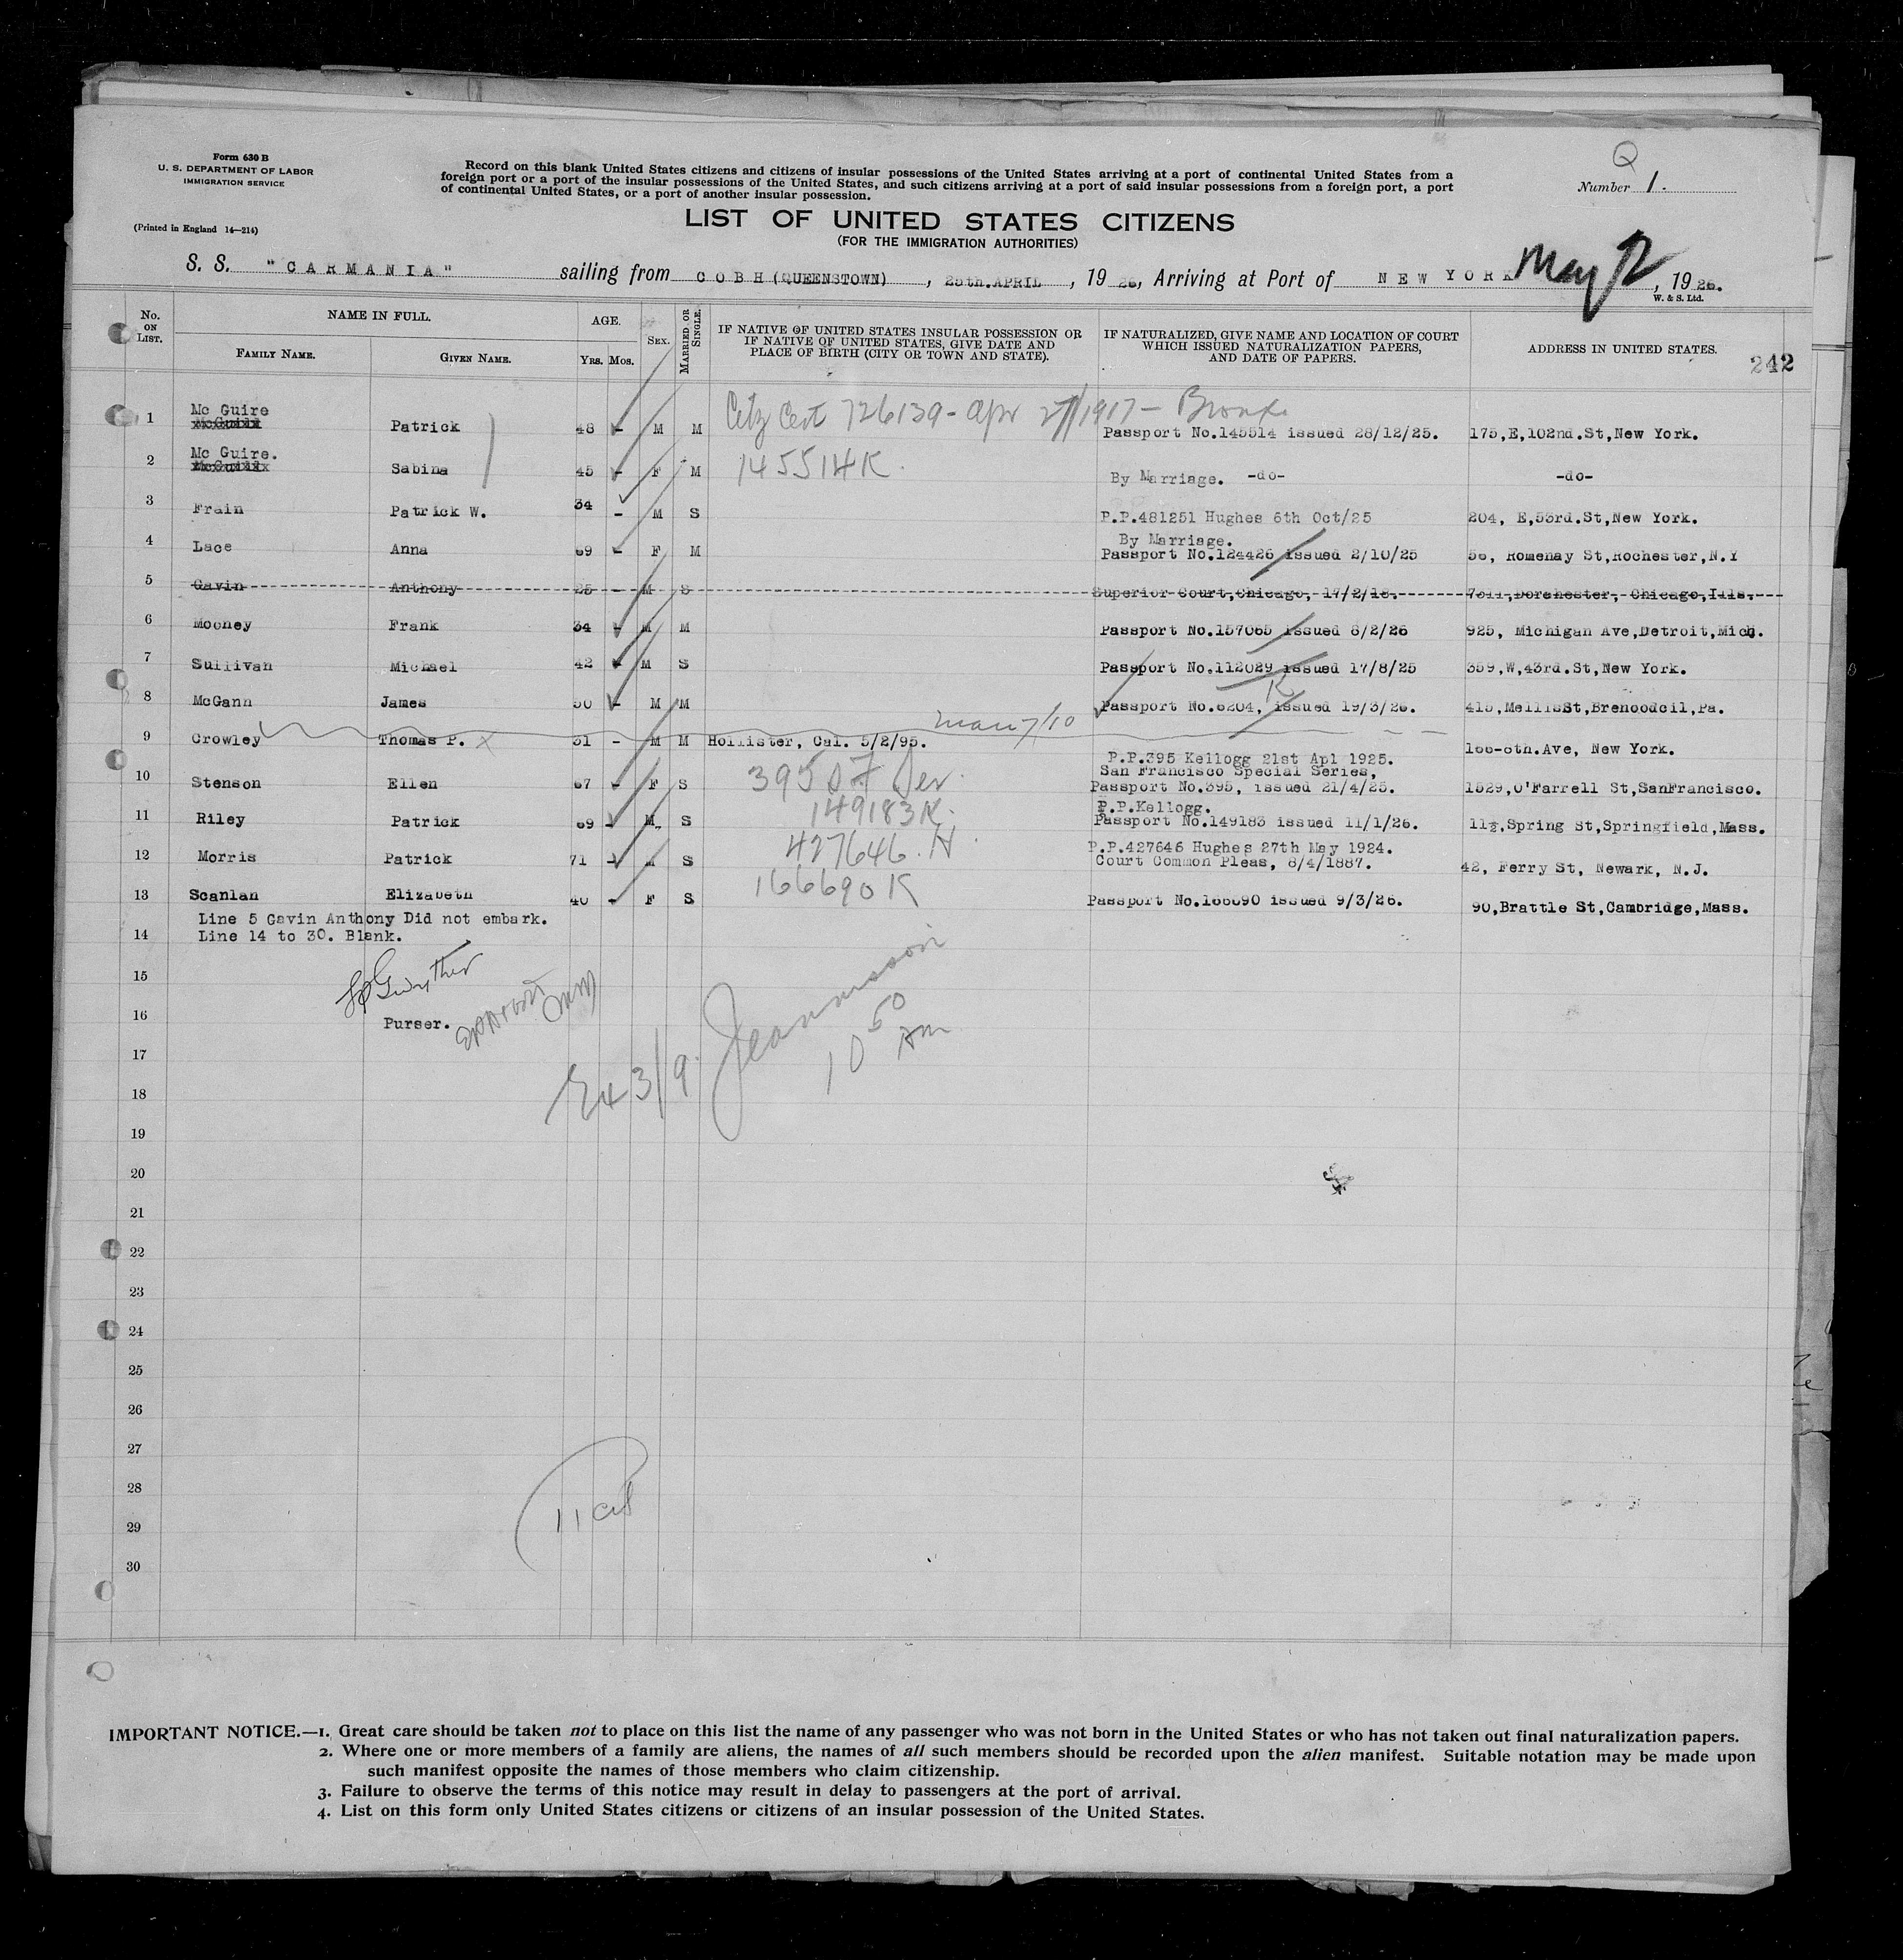 Form 630 B
U. S. DEPARTMENT OF LABOR
IMMIGRATION SERVICE
(Printed in England 14—214)
Record on this blank United States citizens and citizens of insular possessions of the United States arriving at a port of continental United States from a
foreign port or a port of the insular possessions of the United States, and such citizens arriving at a port of said insular possessions from a foreign port, a port
of continental United States, or a port of another insular possession.
Q
Number 1.
LIST OF UNITED STATES CITIZENS
(FOR THE IMMIGRATION AUTHORITIES)
S. S. "CARMANIA" sailing from COBH (QUEENSTOWN), 25th.APRIL, 1926, Arriving at Port of NEW YORK May 2, 1926.
W. & S. Ltd.
No. ON LIST. NAME IN FULL. AGE. SEX. MARRIED OR SINGLE. IF NATIVE OF UNITED STATES INSULAR POSSESSION OR IF NATIVE OF UNITED STATES, GIVE DATE AND PLACE OF BIRTH (CITY OR TOWN AND STATE). IF NATURALIZED, GIVE NAME AND LOCATION OF COURT WHICH ISSUED NATURALIZATION PAPERS, AND DATE OF PAPERS. ADDRESS IN UNITED STATES.
FAMILY NAME. GIVEN NAME. YRS. MOS.
242
1 Mc Guire Patrick 48 - M M Citz Cert 726139 - Apr 27/1917 - Bronx
Passport No.145514 issued 28/12/25. 175,E,102nd.St,New York.
2 Mc Guire. Sabina 45 - F M 145514K. By Marriage. -do- -do-
3 Frain Patrick W. 34 - M S P.P.481251 Hughes 6th Oct/25 204, E,53rd.St,New York.
4 Lace Anna 69 - F M By Marriage.
Passport No.124426 issued 2/10/25 56, Romenay St,Rochester,N.Y
5 Gavin Anthony 25 - M S Superior Court,Chicago, Dorchester, Chicago,Ills.
6 Mooney Frank 34 - M M Passport No.157065 issued 6/2/26 925, Michigan Ave,Detroit,Mich.
7 Sullivan Michael 42 - M S Passport No.112029 issued 17/8/25 359,W,43rd.St,New York.
8 McGann James 50 - M M Passport No.6204, K issued 19/3/26. 415,MellisSt,Brencodcil,Pa.
9 Crowley Thomas P. x 31 - M M Hollister, Cal. 5/2/95. P.P.395 Kellogg 21st Apl 1925.
San Francisco Special Series, New York.
10 Stenson Ellen 67 - F S 395 Passport No.395, issued 21/4/25. 1529,O'Farrell St,SanFrancisco.
11 Riley Patrick 69 - M S 149183K. P.P.Kellogg.
Passport No.149183 issued 11/1/26. 11½,Spring St,Springfield,Mass.
12 Morris Patrick 71 - M S 427646.H P.P.427646 Hughes 27th May 1924.
Court Common Pleas, 8/4/1887. 42, Ferry St, Newark, N.J.
13 Scanlan Elizabeth 40 - F S 166690K Passport No.166690 issued 9/3/26. 90,Brattle St,Cambridge,Mass.
Line 5 Gavin Anthony Did not embark.
14 Line 14 to 30. Blank.
15
16 Purser.
10 50 AM
17
18
19
20
21
22
23
24
25
26
27
28
29
30
IMPORTANT NOTICE.—1. Great care should be taken not to place on this list the name of any passenger who was not born in the United States or who has not taken out final naturalization papers.
2. Where one or more members of a family are aliens, the names of all such members should be recorded upon the alien manifest. Suitable notation may be made upon
such manifest opposite the names of those members who claim citizenship.
3. Failure to observe the terms of this notice may result in delay to passengers at the port of arrival.
4. List on this form only United States citizens or citizens of an insular possession of the United States.